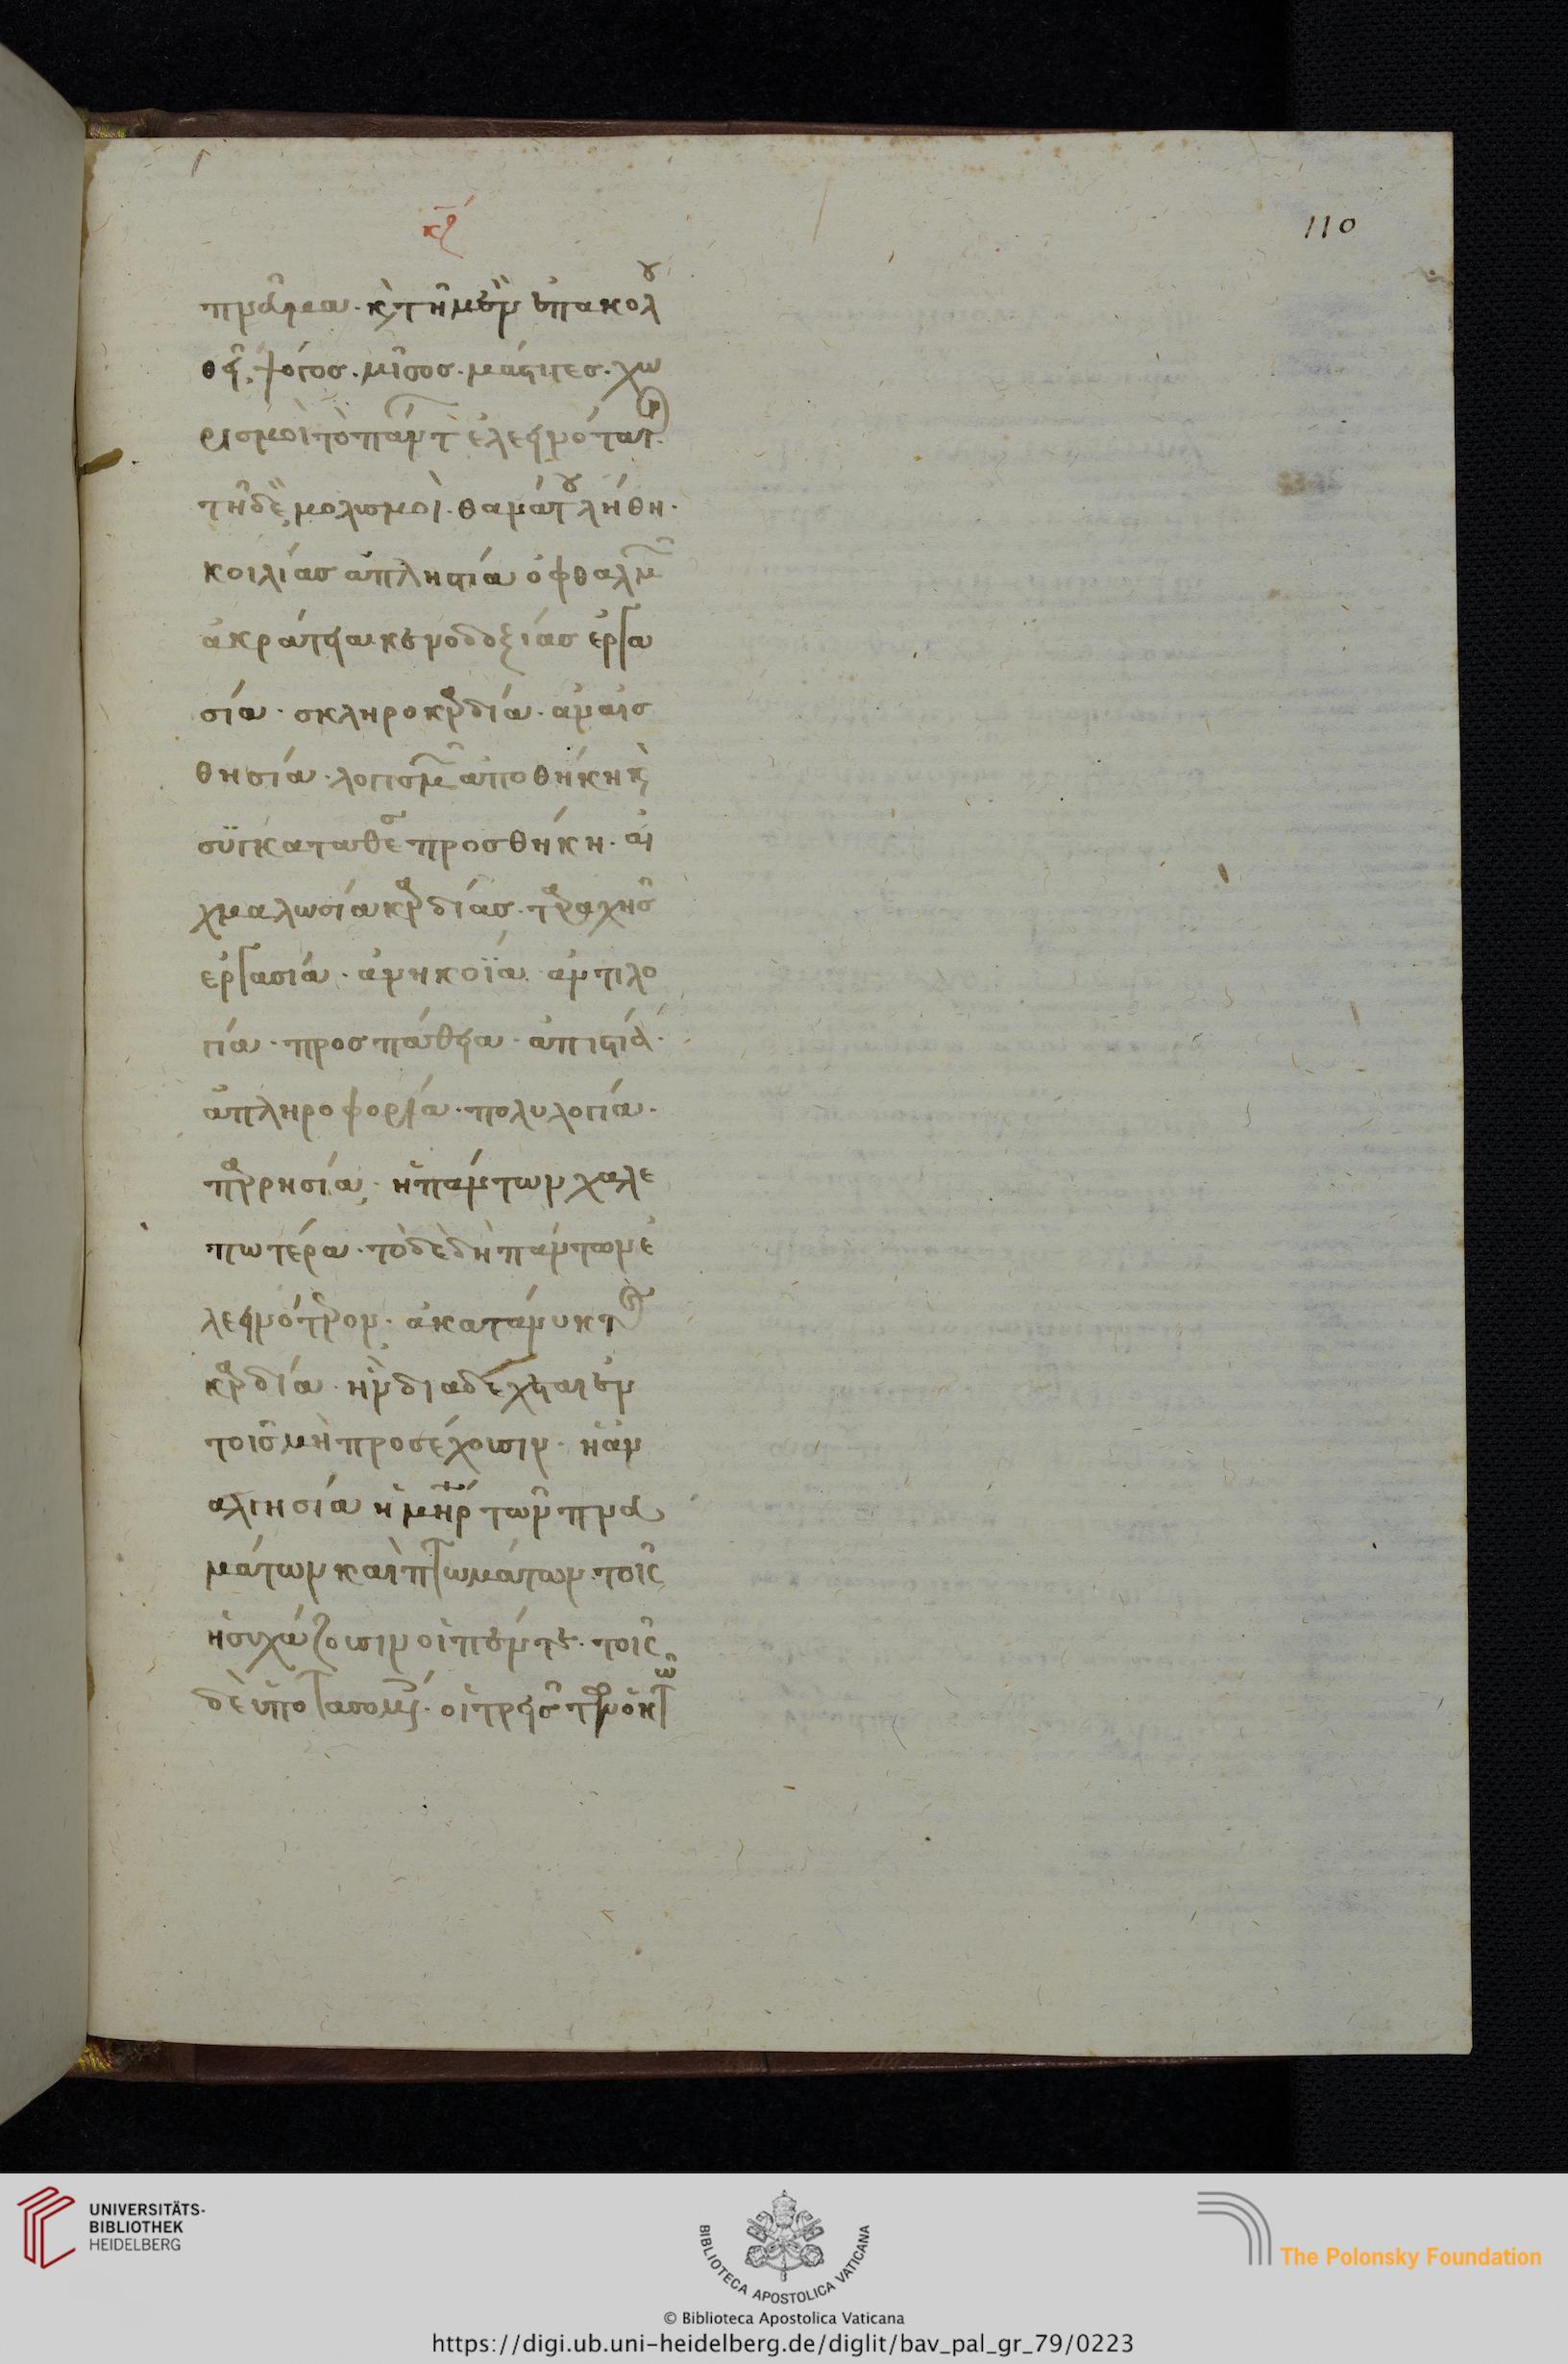 κζ
110
πρᾶγμα. κ τῇ μὲν ἐπακολου
θεῖ, ψόγος. μῖσος. μάστιγες. χω
ρισμοὶ τὸ πάντ ἐλεεινόταται.
τῇ δὲ, μολυσμοὶ. θανάτου λήθη.
κοιλίας ἀπληστία ὀφθαλμῶν
ἀκράτεια. κενοδοξίας ἐργα
σία. σκληροκαρδία. ἀναισ
θησία. λογισμῶν ἀποθήκη κ
συγκαταθέσ προσθήκη. αἰ
χμαλωσία καρδίας. ταραχῆς
ἐργασία. ἀνηκοΐα. ἀντιλο
γία. προσπάθεια. ἀπιστία.
ἀπληροφορία. πολυλογία.
παρρησία, ἡ πάντων χαλε
πωτέρα. τὸ δὲ δὴ πάντων ἐ
λεεινότερον. ἀκατάνυκτος
καρδία. ἣν διαδέχεται ἐν
τοῖς μὴ προσέχουσιν. ἡ ἀν
αλγησία ἡ μηρ τῶν πρα
μάτων καὶ πτωμάτων. τοῖς
ἡσυχάζουσιν οἱ πέντε. τοῖς
δὲ ὑποτασσομ. οἱ τρεῖς τῶν ὀκτὼ
UNIVERSITÄTS-
BIBLIOTHEK
HEIDELBERG
BIBLIOTECA APOSTOLICA VATICANA
The Polonsky Foundation
© Biblioteca Apostolica Vaticana
https://digi.ub.uni-heidelberg.de/diglit/bav_pal_gr_79/0223